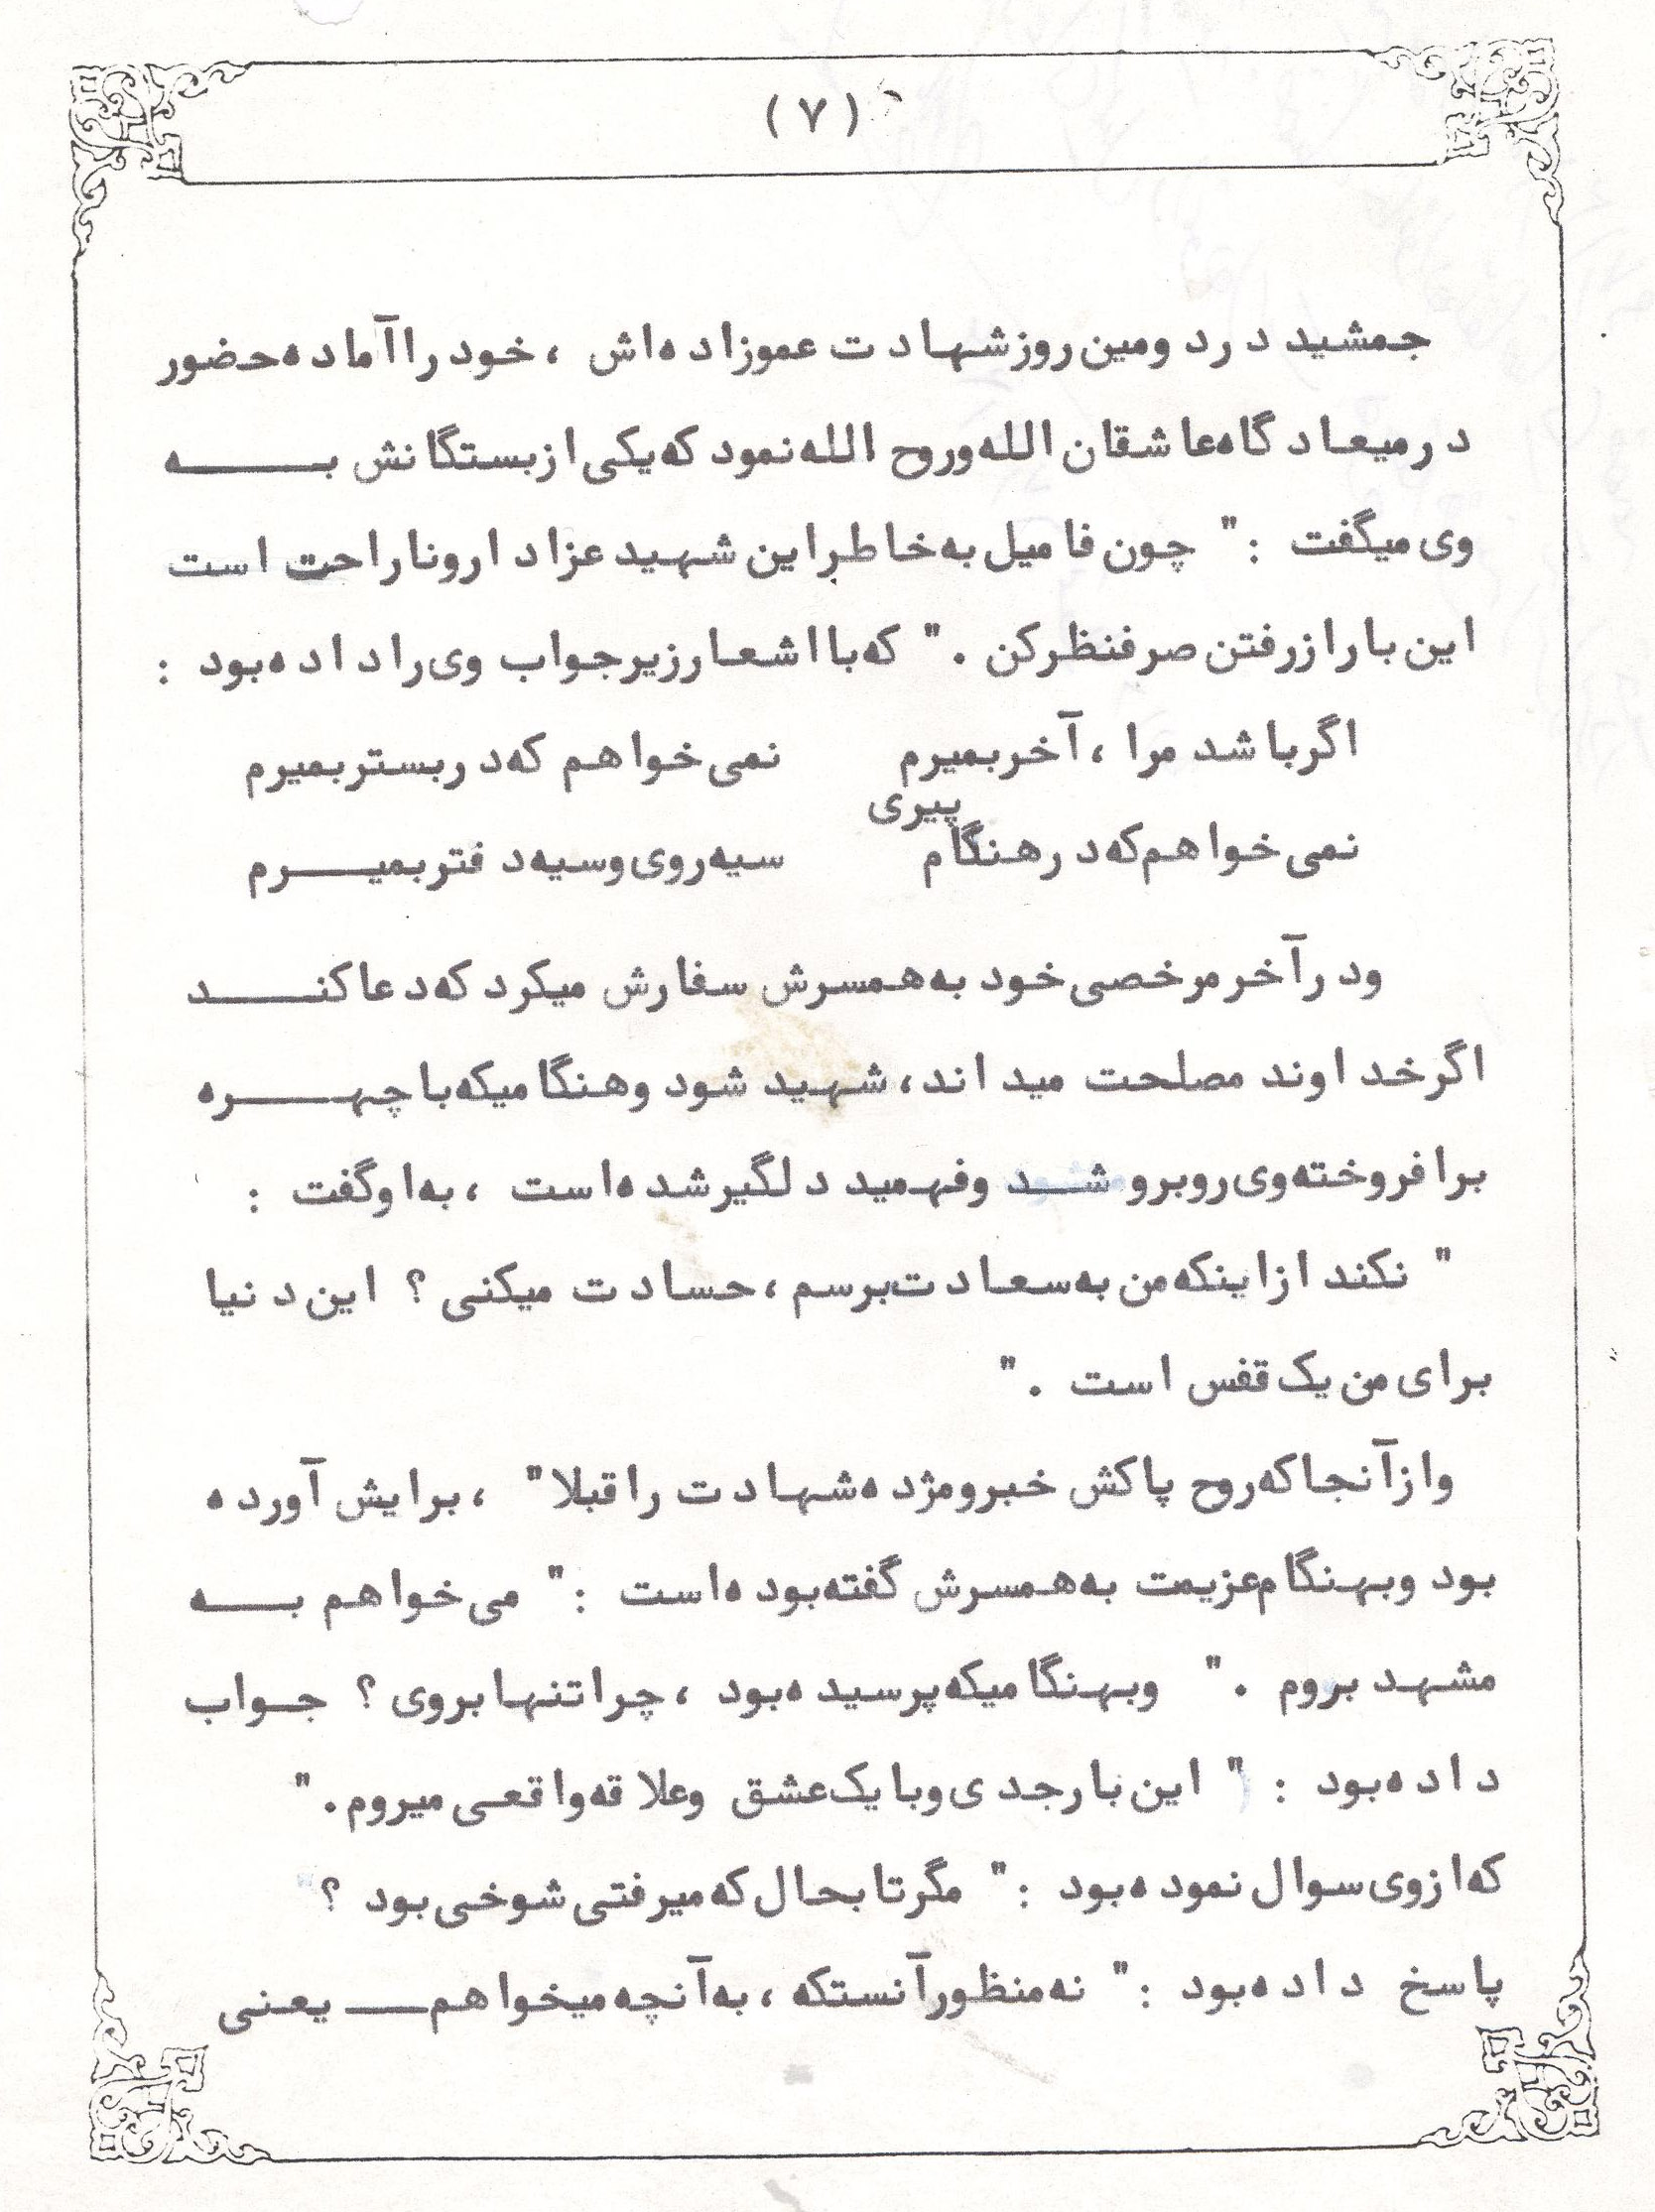 (۷)
جمشید در دومین روز شهادت عموزاده‌اش ، خود را آماده حضور
در میعادگاه عاشقان الله و روح الله نمود که یکی از بستگانش بـــه
وی میگفت :" چون فامیل به خاطر این شهید عزادار و ناراحت است
این بار از رفتن صرفنظر کن ." که با اشعار زیر جواب وی را داده بود :
اگر باشد مرا ، آخر بمیرم    نمی خواهم که در بستر بمیرم
نمی خواهم که در هنگام پیری    سیه روی و سیه دفتر بمیــرم
و در آخر مرخصی خود به همسرش سفارش میکرد که دعا کنـــد
اگر خداوند مصلحت میداند، شهید شود و هنگامیکه با چهـــره
برافروخته وی روبرو شــد و فهمید دلگیر شده است ، به او گفت :
" نکند از اینکه من به سعادت برسم ، حسادت میکنی ؟ این دنیا
برای من یک قفس است ."
و از آنجا که روح پاکش خبر و مژده شهادت را قبلا" ، برایش آورده
بود و بهنگام عزیمت به همسرش گفته بوده است :" می خواهم بـــه
مشهد بروم ." و بهنگامیکه پرسیده بود ، چرا تنها بروی ؟ جــواب
داده بود : " این بار جدی و با یک عشق و علاقه واقعی میروم."
که از وی سوال نموده بود :" مگر تا بحال که میرفتی شوخی بود ؟"
پاسخ داده بود :" نه منظور آنستکه ، به آنچه میخواهم ـــ یعنی